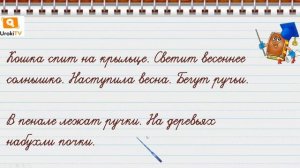 UrokiTV
Кошка спит на крыльце. Светит весеннее
солнышко. Наступила весна. Бегут ручьи.
В пенале лежат ручки. На деревьях
набухли почки.